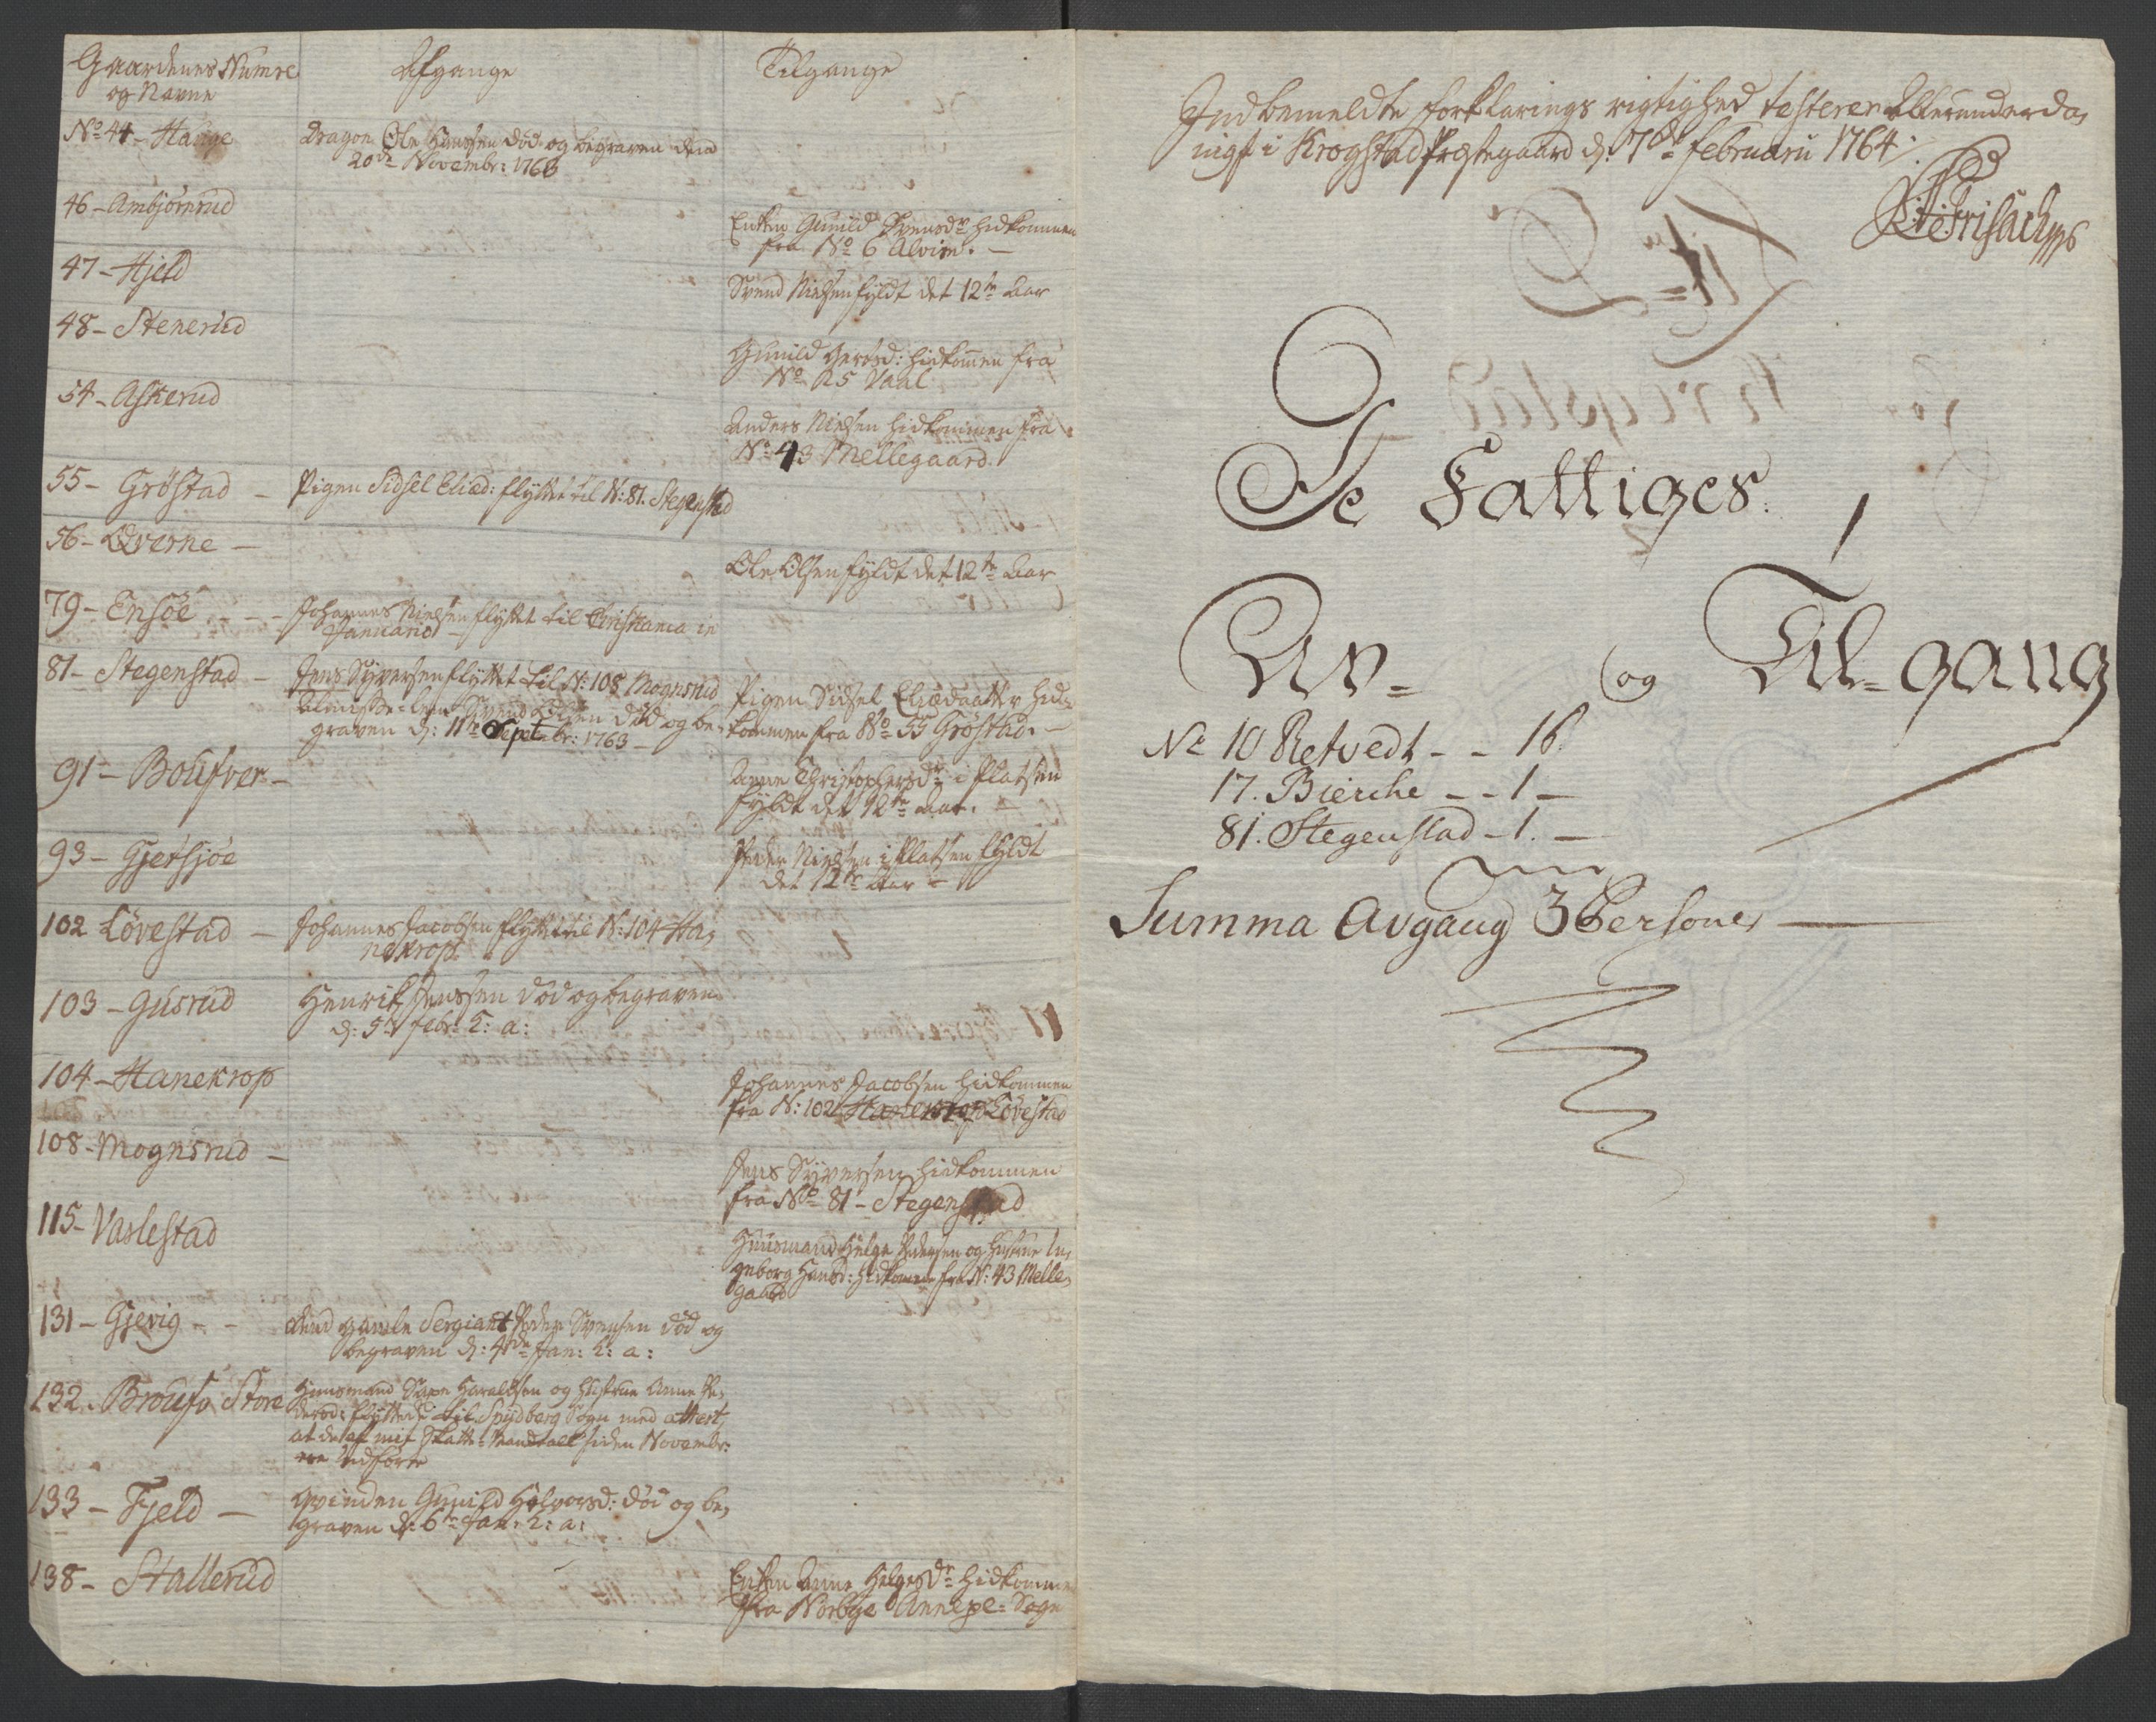 Gaardenes Numre
og Navne
Afgange
Tilgange
No 44 - Hauge
Dragon Ole Hanssen död og begraven den
20de Novembr: 1763
46 - Ambjörnrud
Enken Gunild Svensdr hidkommen
fra No 6 Alvim. -
47 - Hjeld
Svend Nielsen fyldt det 12te Aar
48 - Stenerud
Gunild hidkommen fra
No 25 Vaal
54 - Askerud
Anders Nielsen hidkommen fra
No 43 Mellegaard.
55 - Gröstad -
Pigen Sidsel Eliæd: flyttet til N: 81. Stegenstad
56 - Qverne -
Ole Olsen fyldt det 12te Aar
79 - Ensöe - -
Johannes Nielsen flyttet til Christiania in
Januario -
81 - Stegenstad -
Jens Syversen flyttet til N: 108 Mognsrud
Svend död og be-
graven d: 11te Septembr: 1763 -
Pigen Sidsel Eliædaatter hid-
kommen fra No 55 Gröstad. -
91 - Bousver -
Anne Christophersdr i Platsen
fyldt det 12te Aar. -
93 - Gjersjöe
Peder Nielsen i Platsen fyldt
det 12te Aar -
102 Lövestad -
Johannes Jacobsen flyttet til N: 104 Ha-
nekrop.
103 - Gusrud
Henrik Jenssen död og begraven
d: 5te Febr: h: a:
104 - Hanekrop
Johannes Jacobsen hidkommen
fra N: 102 Hanekrop Lövestad
108 - Mognsrud -
Jens Syversen hidkommen
fra No 81 - Stegenstad
115 - Vaslestad
Huusmand Helge Pedersen og Hustrue In-
geborg Hansd: hidkommen fra N: 43 Melle-
gaard
131 - Gjevig - -
den gamle Sergiant Peder Svensen död og
begraven d: 4de Jan: h: a:
132. Brousv Store
Huusmand Haraldsen og Hustrue Anne Pe-
dersd: flyttede til Spydberg Sogn med attest,
at de af mit Skatte-Mandtall siden Novembr:
ere udförte
133 - Fjeld -
Qvinden Gunild Halvorsd: död og be-
graven d: 6te Jan: h: a:
138 - Stallerud
Enken Anne Helgesdr hidkommen
fra Norbye Annexe-Sogn
Indbemeldte Forklarings rigtighed testerer Allerunderda-
nigst i Krogstad Præstegaard d: 7de Februarii 1764.
De Fattiges.
Av- og Til-gang
No 10 Retvedt - - 1
17. Bierche - - 1 -
81. Stegenstad - 1. -
Summa Avgang 3 Personer